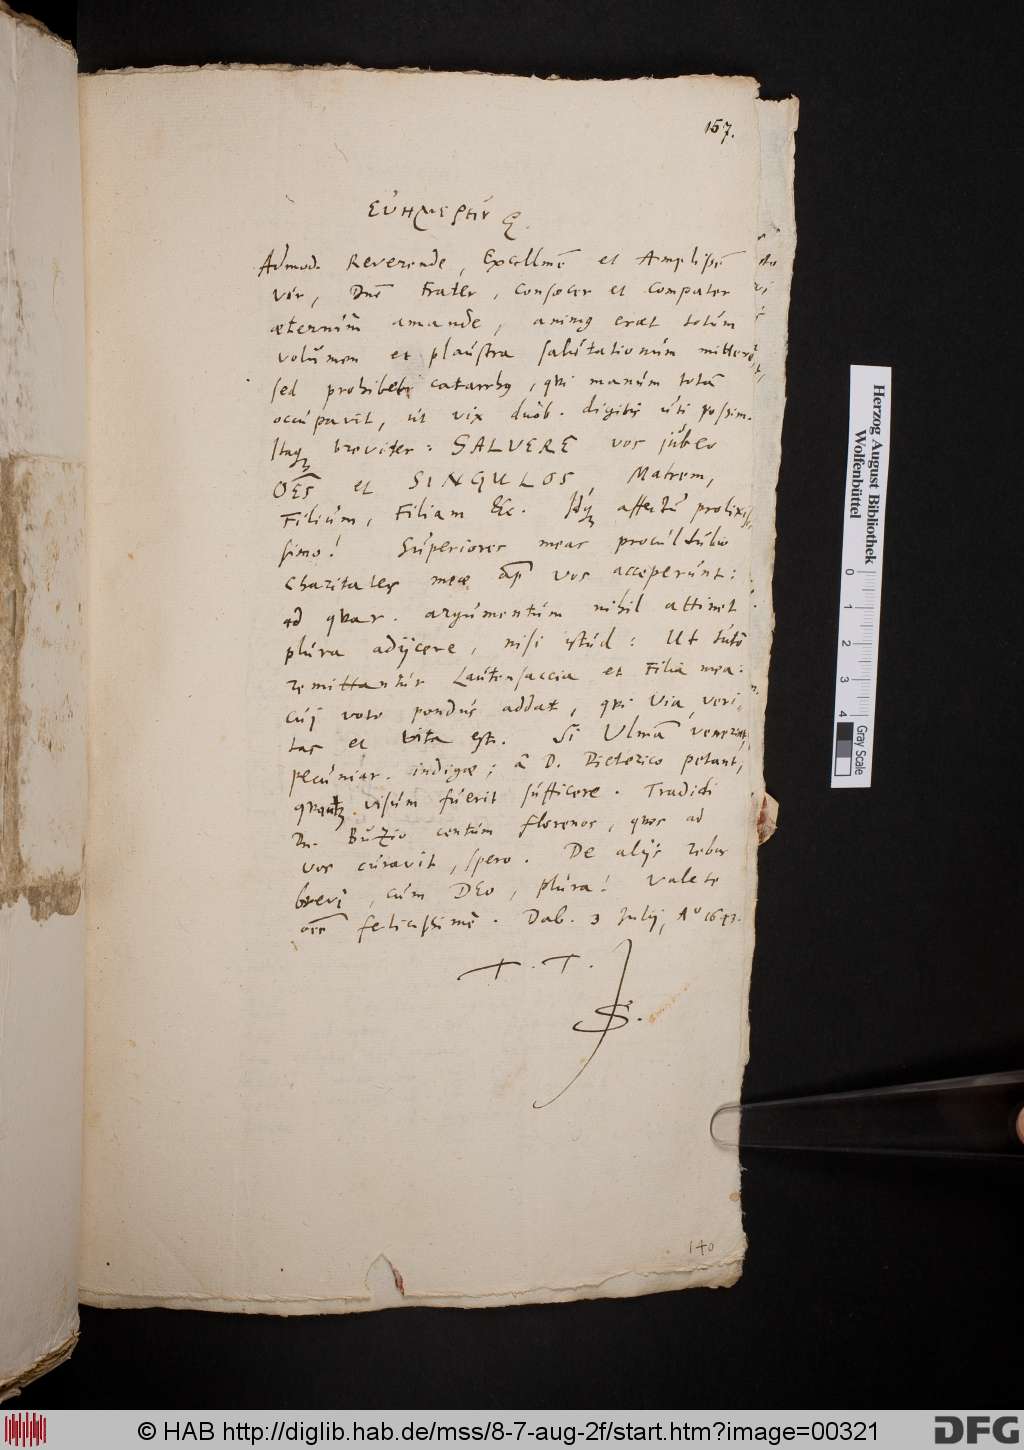 157.
εὐημερεῖν
Admod. Reverende, Excellme et Amplissē
vir, Dnē Frater, Consocer et Compater
æternùm amande, animꝯ erat totum
volumen et plaustra salutationum mittere
sed prohibet catarrhꝯ, qui manum totā
occupavit, ut vix duob. digitis uti possim.
Itaq; breviter: SALVERE vos jubeo
OES et SINGULOS, Matrem,
Filium, Filiam &c. Idq; affectu prolixis
simo! Superiores meas procul dubio
charitates meæ ap vos acceperunt:
ad quar. argumentum nihil attinet
plura adijcere, nisi istud: Ut tutò
remittantur Lautensaccia et Filia mea:
cuj voto pondus addat, qui Via, veri-
tas et vita est. Si Ulmā venerint,
pecuniar. indigæ; à D. Dieterico petant,
visum fuerit sufficere. Tradidi
centum florenos, quos ad
vos curavit, spero. De alijs rebus
brevi, cum DEO, plura! Valete
oēs felicissimè. Dab. 3 Julij, Aº 1643.
T. T.
S.
140
Herzog August Bibliothek
Wolfenbüttel
0 1 2 3 4
Gray Scale
© HAB http://diglib.hab.de/mss/8-7-aug-2f/start.htm?image=00321
DFG